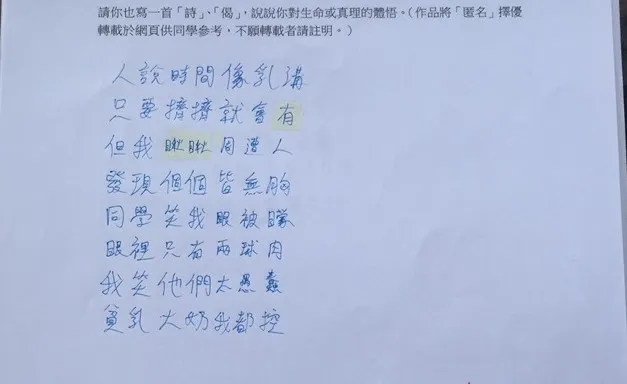 請你也寫一首「詩」、「偈」，說說你對生命或真理的體悟。（作品將「匿名」擇優
轉載於網頁供同學參考，不願轉載者請註明。）
人說時間像乳溝
只要擠擠就會有
但我瞅瞅周遭人
發現個個皆無胸
同學笑我眼被矇
眼裡只有兩球肉
我笑他們太愚蠢
貧乳大奶我都控